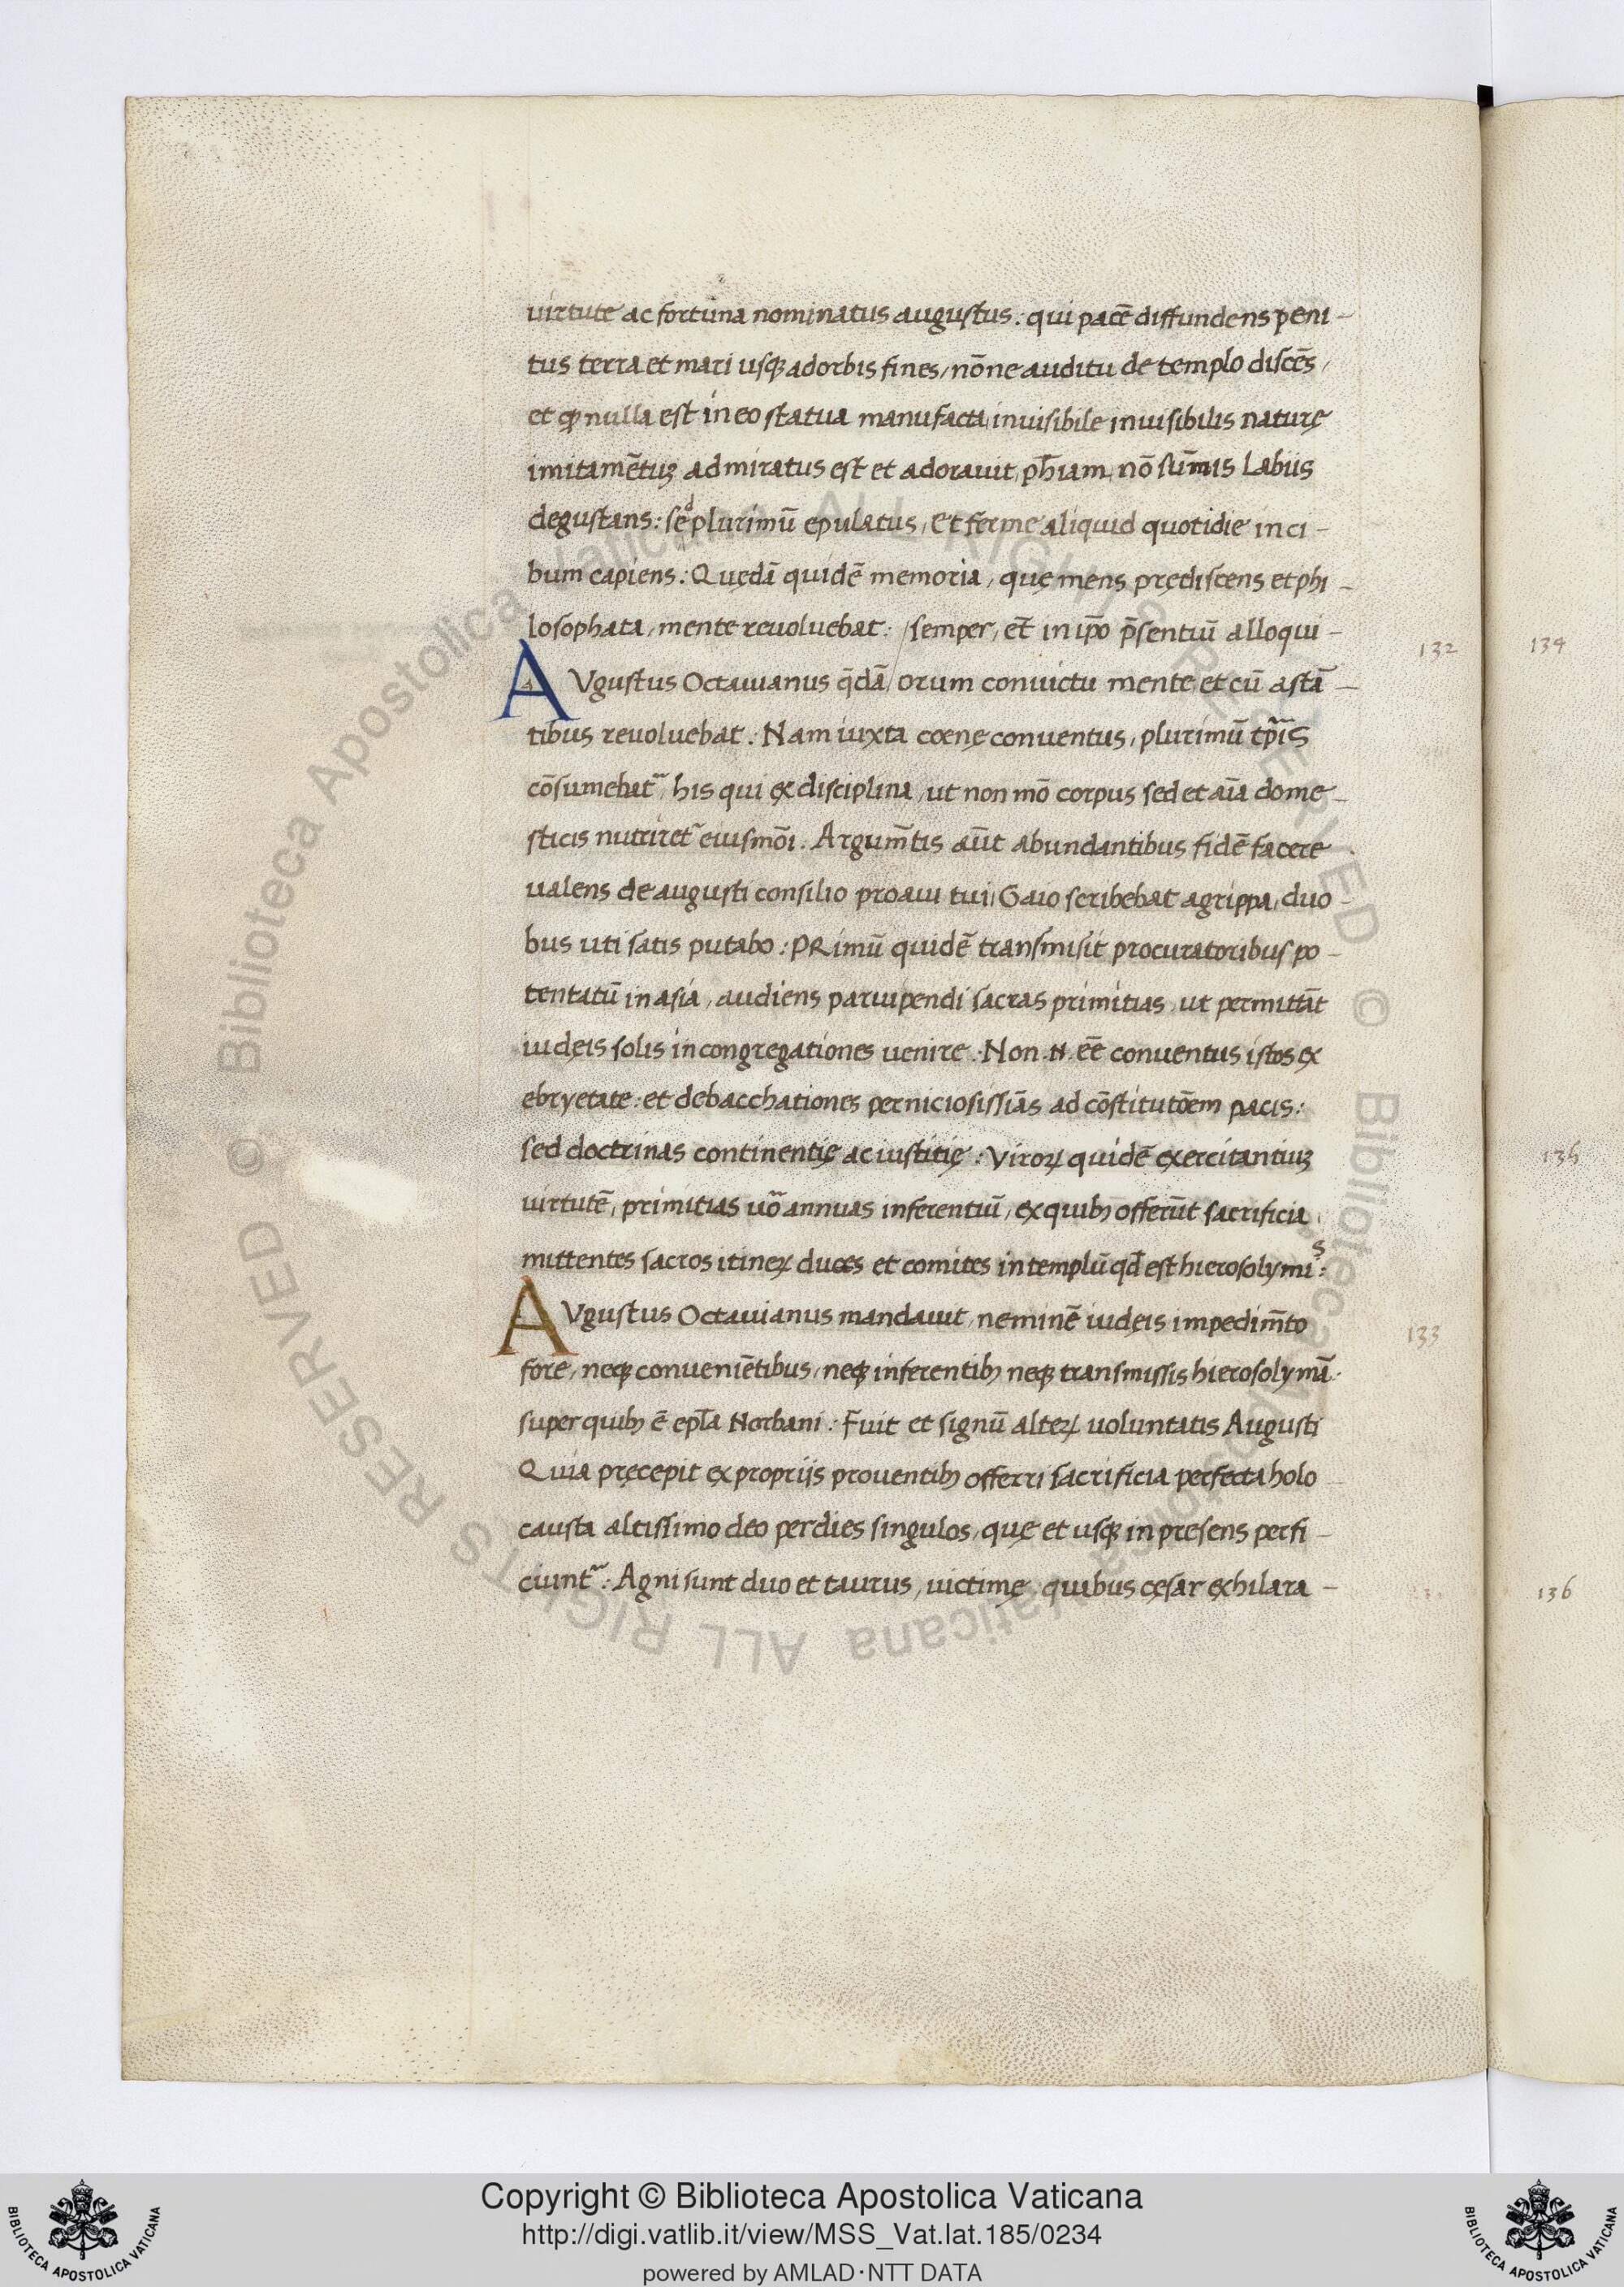 uirtute ac fortuna nominatus augustus: qui pacē diffundens peni-
tus terra et mari usqꝫ ad orbis fines, nōne auditu de templo discēs,
et ꝙ nulla est in eo statua manufacta, inuisibile inuisibilis naturę
imitamētuꝫ admiratus est et adorauit, ph̄iam, nō sum̄is labiis
degustans: sed plurimū epulatus, et ferme aliquid quotidie in ci-
bum capiens: Quędā quidē memoria, quę mens prędiscens et phi-
losophata, mente reuoluebat: /semper, et̄ in ip̄o p̄sentiū alloqui-
AVgustus Octauianus q̄dā/ orum conuictu mente, et cū astā-
tibus reuoluebat. Nam iuxta coenę conuentus, plurimū tp̄is
cōsumebat᷑, his qui ex disciplina, ut non mō corpus sed et aīa dome-
sticis nutriret᷑ eiusmōi. Argum̄tis aūt abundantibus fidē facere
ualens de augusti consilio proaui tui, Gaio scribebat agrippa, duo-
bus uti satis putabo: PRimū quidē transmisit procuratoribus po-
tentatū in asia, audiens paruipendi sacras primitias, ut permittāt
iudęis solis in congregationes uenire. Non .N. eē conuentus istos ex
ebryetate: et debacchationes perniciosissiās ad cōstitutōem pacis:
sed doctrinas continentię ac iustitię: Viroꝝ quidē exercitantiuꝫ
uirtutē, primitias uō annuas inferentiū, ex quibꝰ offerūt sacrificia,
mittentes sacros itineꝝ duces et comites in templū qd̄ est hierosolymis:
AVgustus Octauianus mandauit, neminē iudęis impedim̄to
fore, neqꝫ conueniētibus, neqꝫ inferentibꝰ neqꝫ transmissis hierosolymā.
super quibꝰ ē epl̄a Norbani: Fuit et signū alteꝝ uoluntatis Augusti
Quia pręcepit ex propriis prouentibꝰ offerri sacrificia perfecta holo
causta altissimo deo per dies singulos, quę et usqꝫ in presens perfi-
ciunt᷑: Agni sunt duo et taurus, uictimę, quibus cęsar exhilara-
132
133
134
135
136
© Biblioteca Apostolica Vaticana ALL RIGHTS RESERVED © Biblioteca Apostolica Vaticana ALL RIGHTS RESERVED
Copyright © Biblioteca Apostolica Vaticana
http://digi.vatlib.it/view/MSS_Vat.lat.185/0234
powered by AMLAD·NTT DATA
BIBLIOTECA APOSTOLICA VATICANA
BIBLIOTECA APOSTOLICA VATICANA